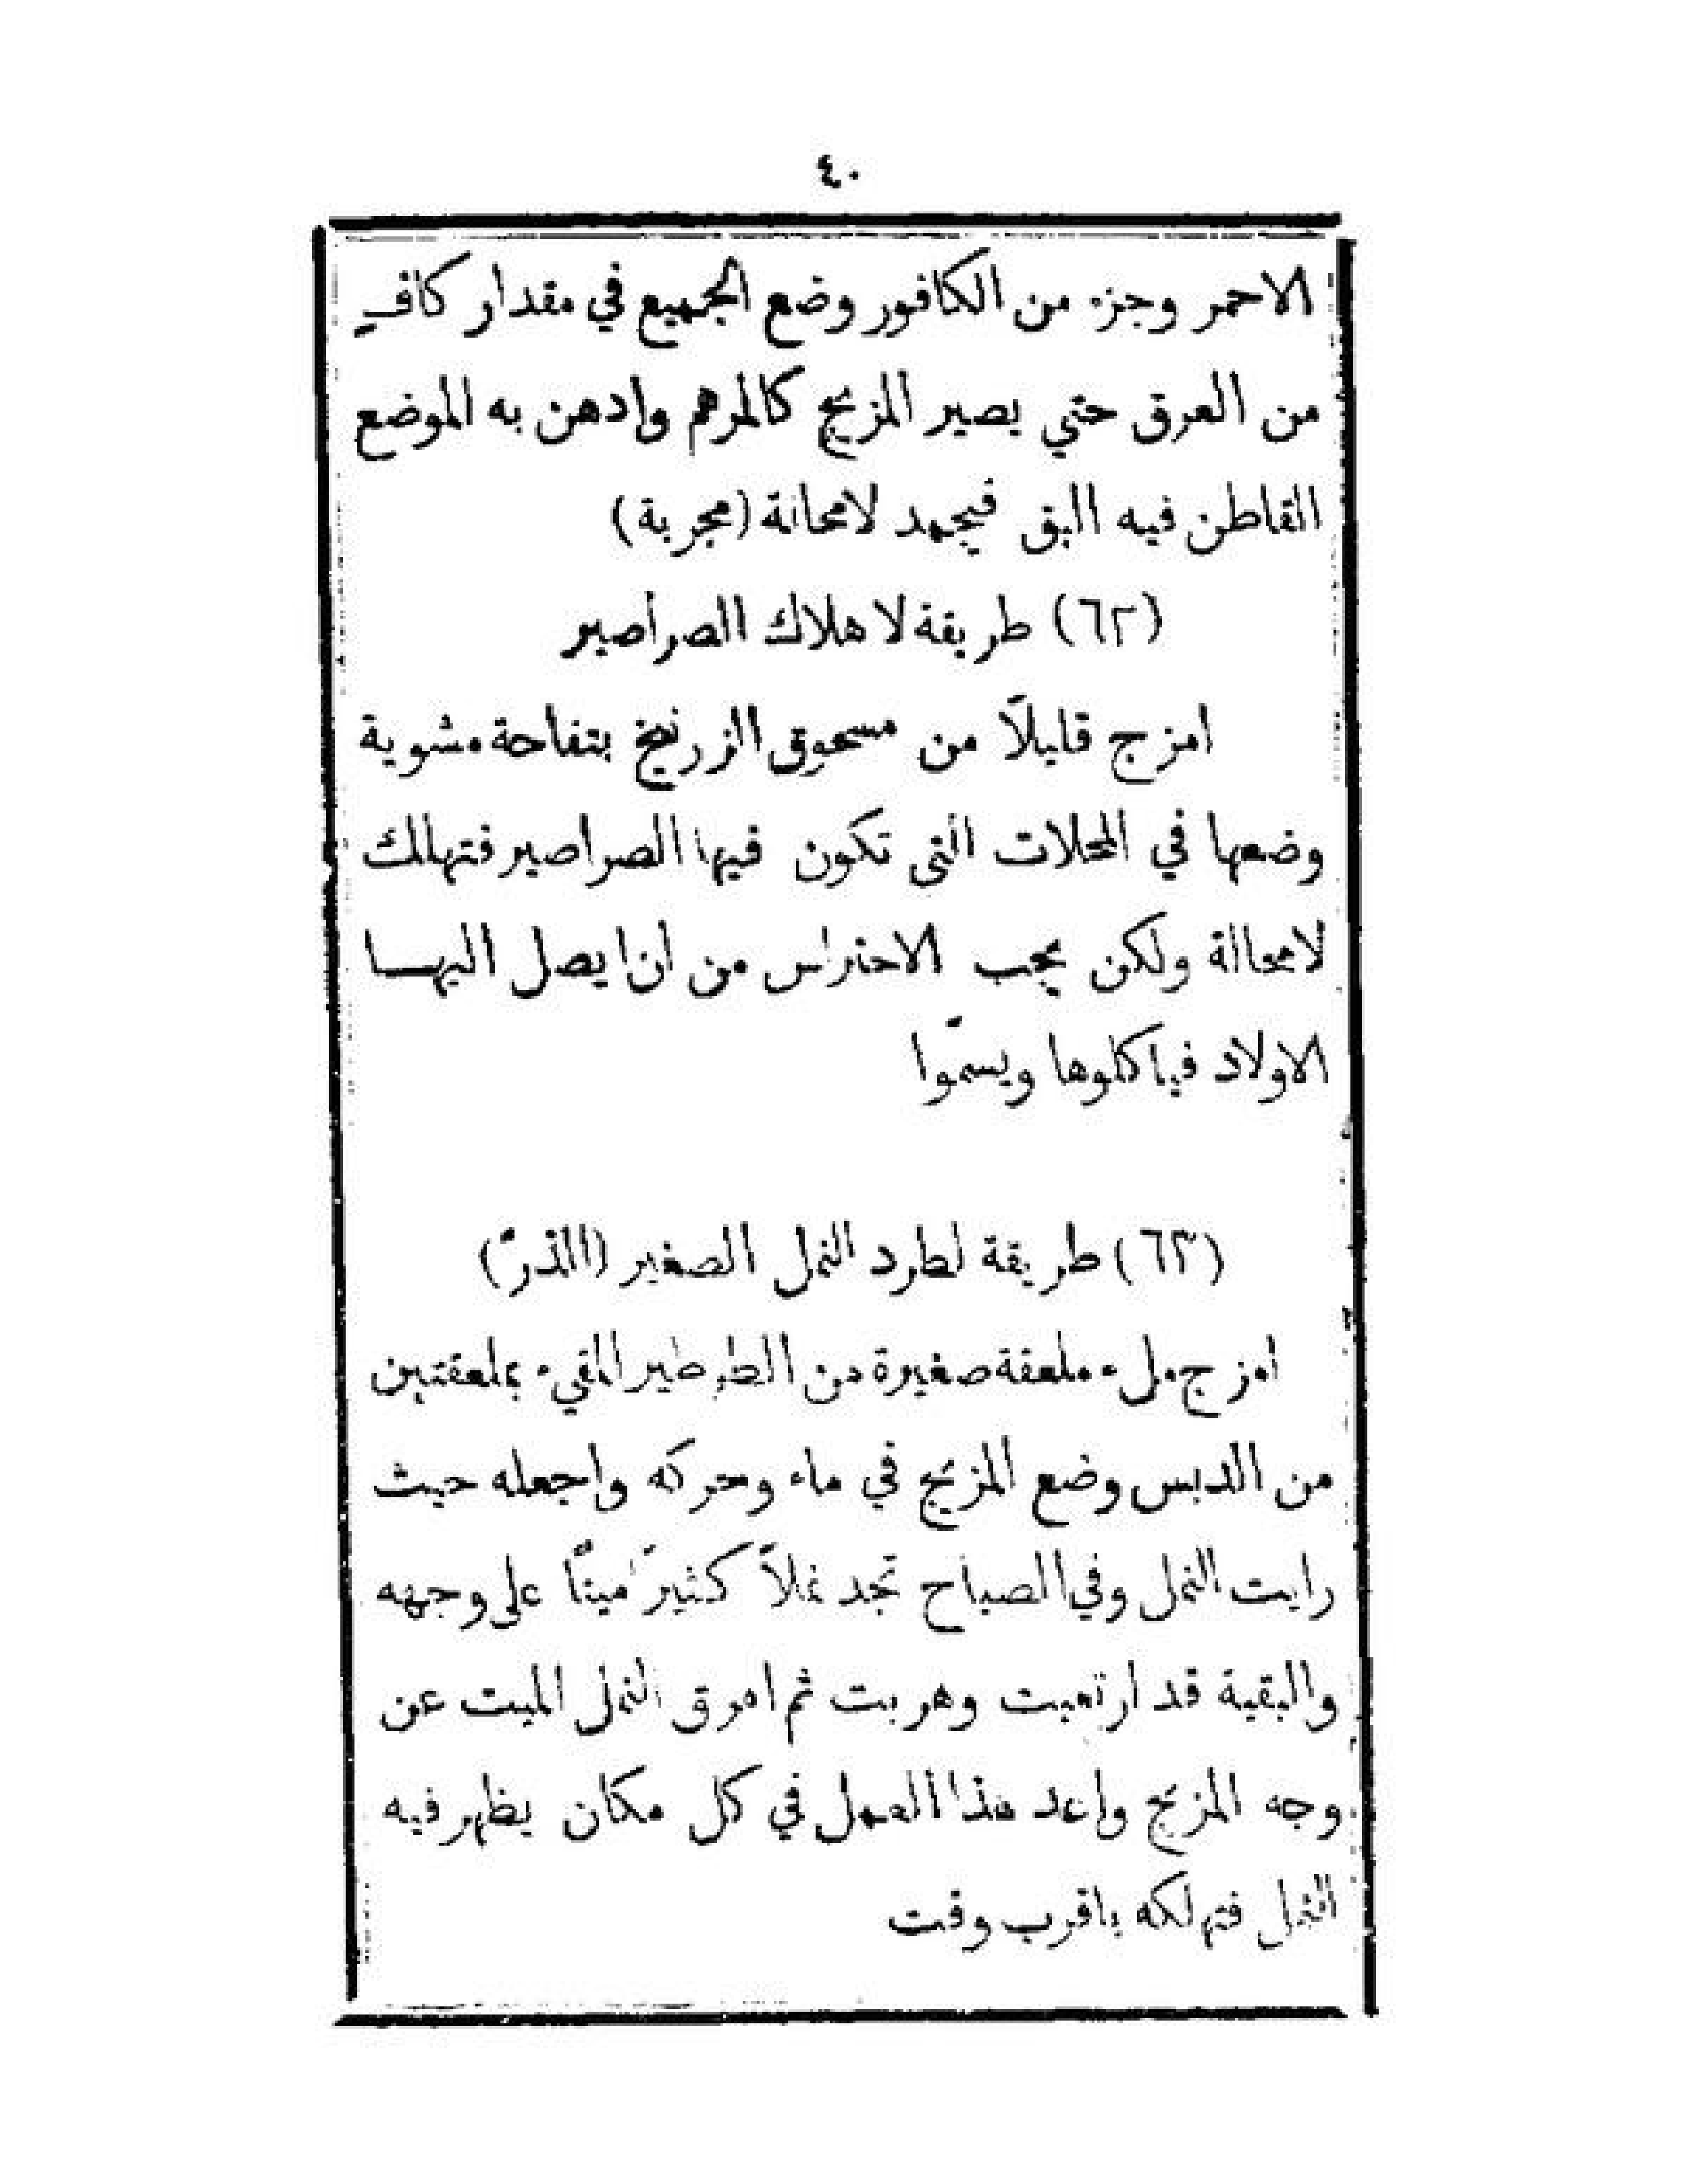 ٤٠
الاحمر وجزء من الكافور وضع الجميع في مقدار كافٍ
من العرق حتي يصير المزيج كالمرهم وادهن به الموضع
القاطن فيه البق فيجمد لامحالة (مجربة)
(٦٢) طريقة لاهلاك الصراصير
امزج قليلاً من مسحوق الزرنيخ بتفاحة مشوية
وضعها في المحلات التى تكون فيها الصراصير فتهلك
لامحالة ولكن يجب الاحتراس من ان يصل اليها
الاولاد فياكلوها ويسمّوا
(٦٣) طريقة لطرد النمل الصغير (الذرّ)
امزج ملء ملعقة صغيرة من الطرطير المقيء بملعقتين
من الدبس وضع المزيج في ماء وحركه واجعله حيث
رايت النمل وفي الصباح تجد نملاً كثيرًا ميتًا على وجهه
والبقية قد ارتعبت وهربت ثم امرق النمل الميت عن
وجه المزيج واعد هذا العمل في كل مكان يظهر فيه
النمل فتهلكه باقرب وقت